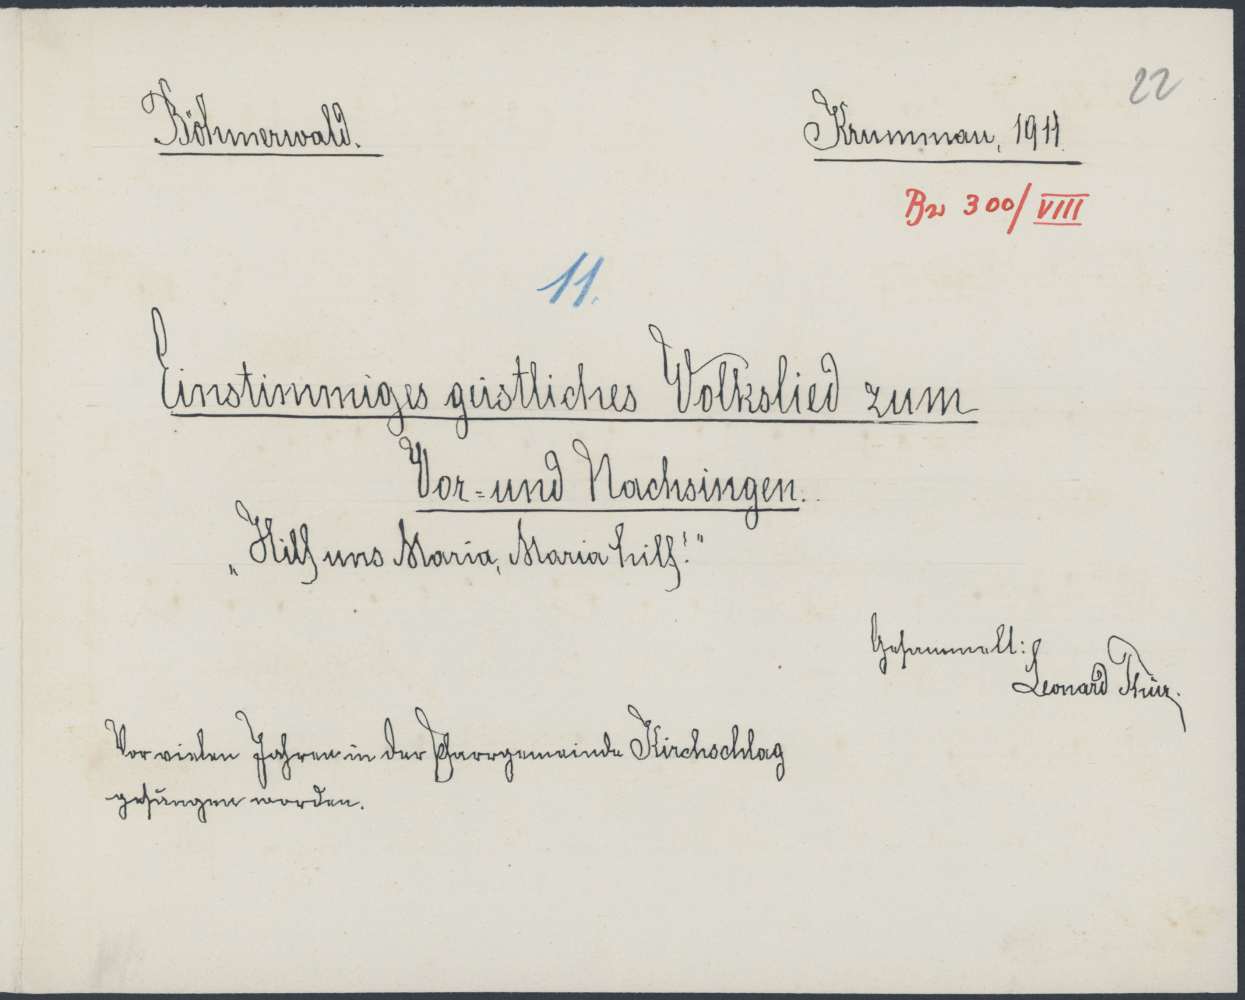 22
Böhmerwald. Krummau, 1911
Bw 300/VIII
11.
Einstimmiges geistliches Volkslied zum
Vor- und Nachsingen.
„Hilf uns Maria, Maria hilf!"
Gesammelt:
Leonard Thür.
Vor vielen Jahren in der Pfarrgemeinde Kirchschlag
gesungen worden.